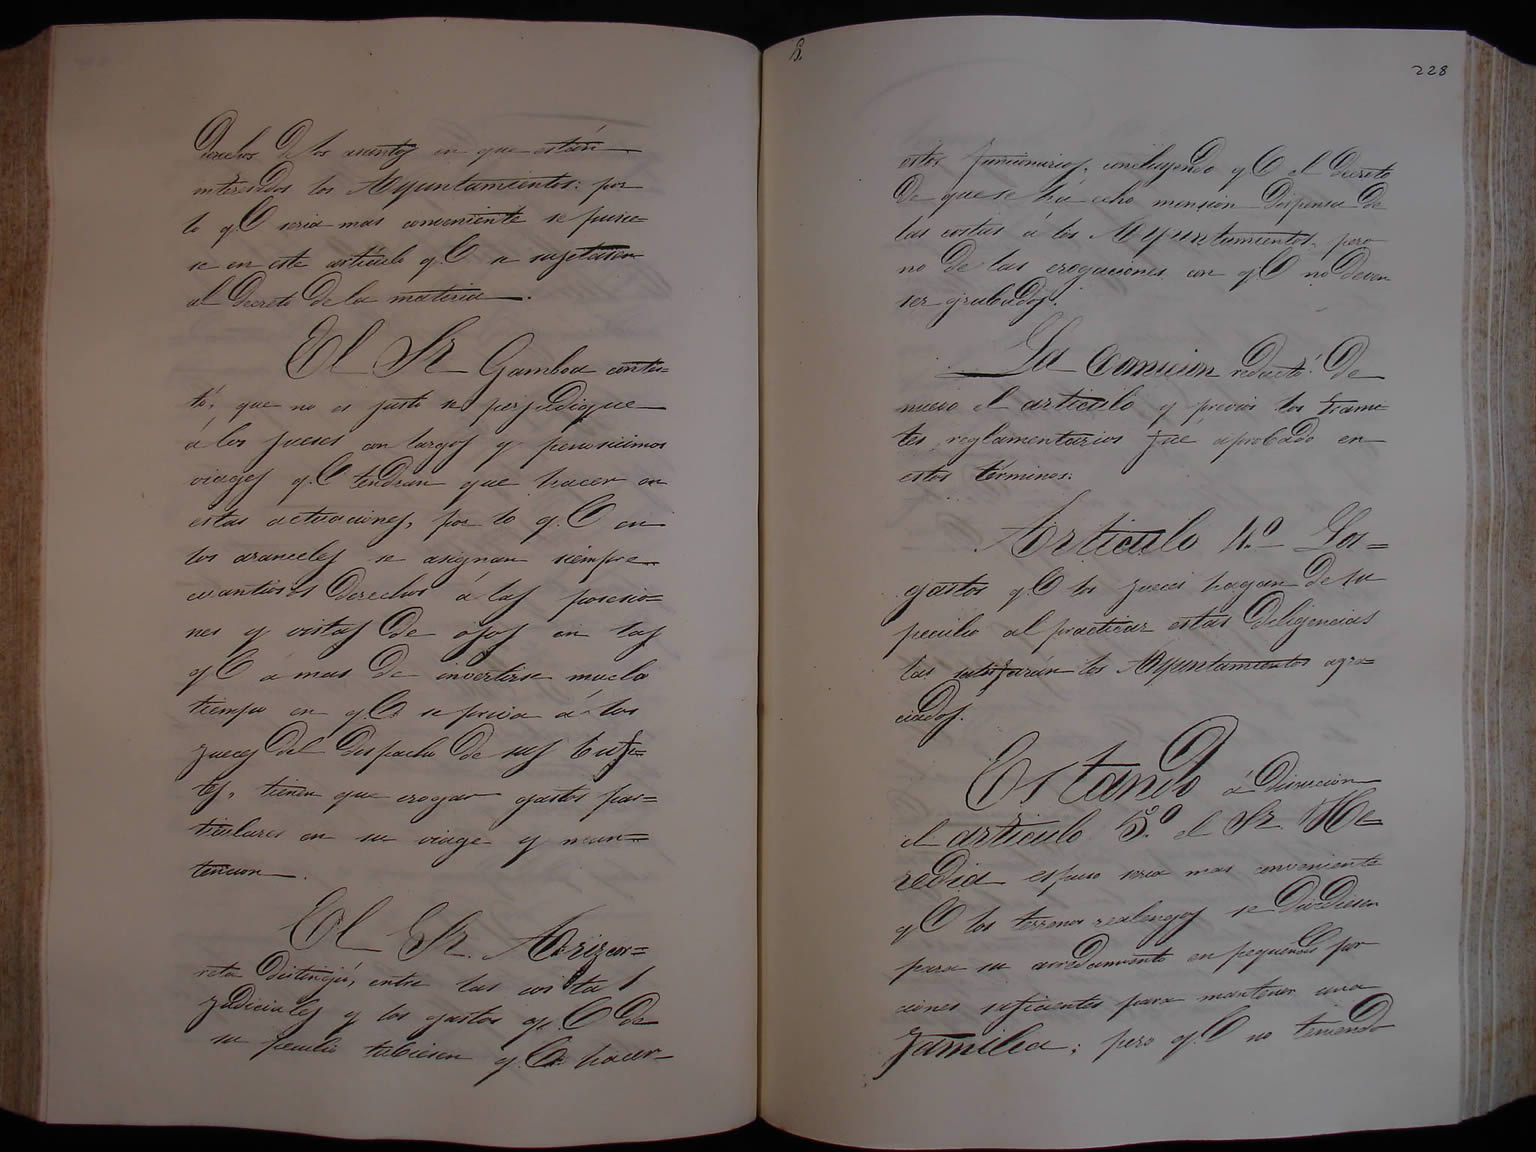 derechos de los asuntos en que estén
interesados los Ayuntamientos: por
lo q.e seria mas conveniente se pusie=
se en este artículo q.e se sujetasen
al decreto de la materia.
El Sr Gamboa contes=
tó, que no es justo se perjudique
á los jueces con largos y penosicimos
viages q.e tendran que hacer en
estas actuaciones, por lo q.e en
los aranceles se asignan siempre
cuantiosos derechos á las posesio=
nes y vistas de ojos en las
q.e á mas de invertirse mucho
tiempo en q.e se priva á los
jueces del despacho de sus bufe=
tes, tienen que erogar gastos par=
ticulares en su viage y man=
tencion.
El Sr. Arizcor=
reta distinguió, entre las costas
judiciales y los gastos q.e de
su peculio tubiesen q.e hacer
B.
228
estos funcionarios, concluyendo q.e el decreto
de que se há echo mension dispensa de
las costas á los Ayuntamientos, pero
no de las erogaciones con q.e no deven
ser grabados.
La Comision redactó de
nuevo el artículo y previos los trami=
tes reglamentarios fue aprobado en
estos terminos:
Artículo 4.o Los=
gastos q.e los jueces hagan de su
peculio al practicar estas diligencias
las satisfarán los Ayuntamientos agra=
ciados.
Estando á discucion
el artículo 5.o el Sr. He=
redia espuso seria mas conveniente
q.e los terrenos realengos se dividiesen
para su arrendamiento en pequeñas por
ciones suficientes para mantener una
familia; pero q.e no teniendo